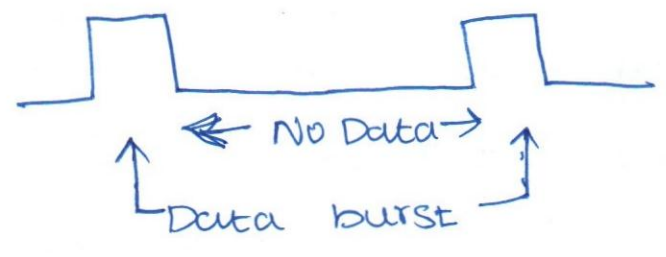 No Data
Data burst